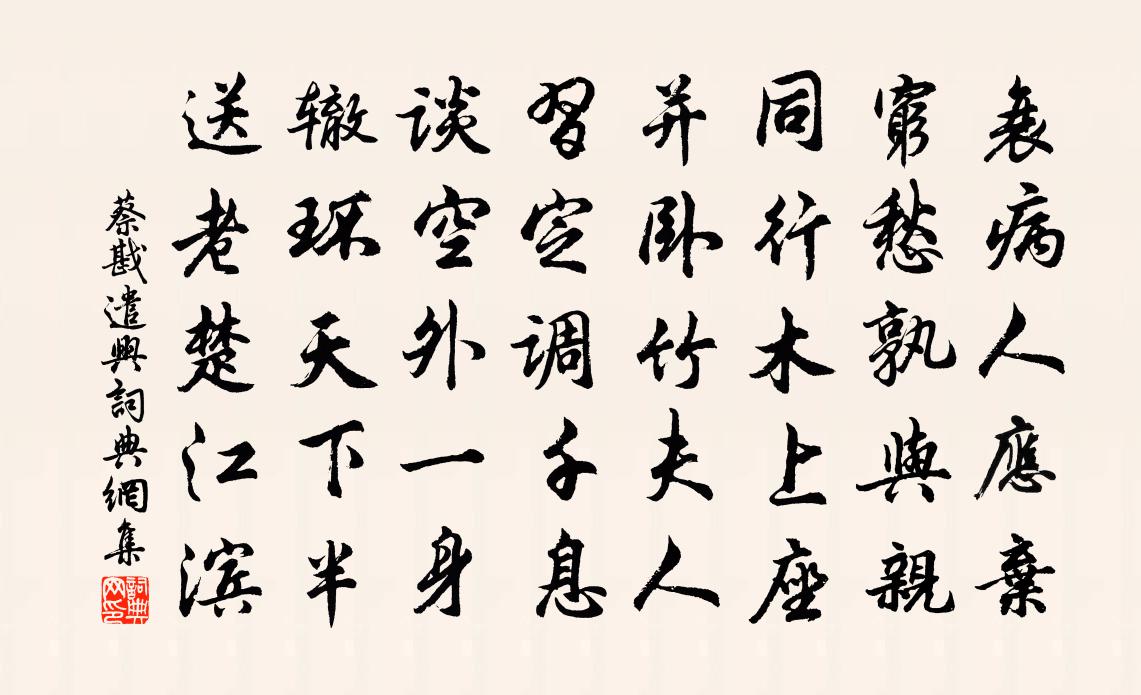 衰病人應棄
窮愁孰與親
同行木上座
并卧竹夫人
習定调千息
谈空外一身
辙环天下半
送老楚江滨
蔡戡遣興詞典網集
詞典网印